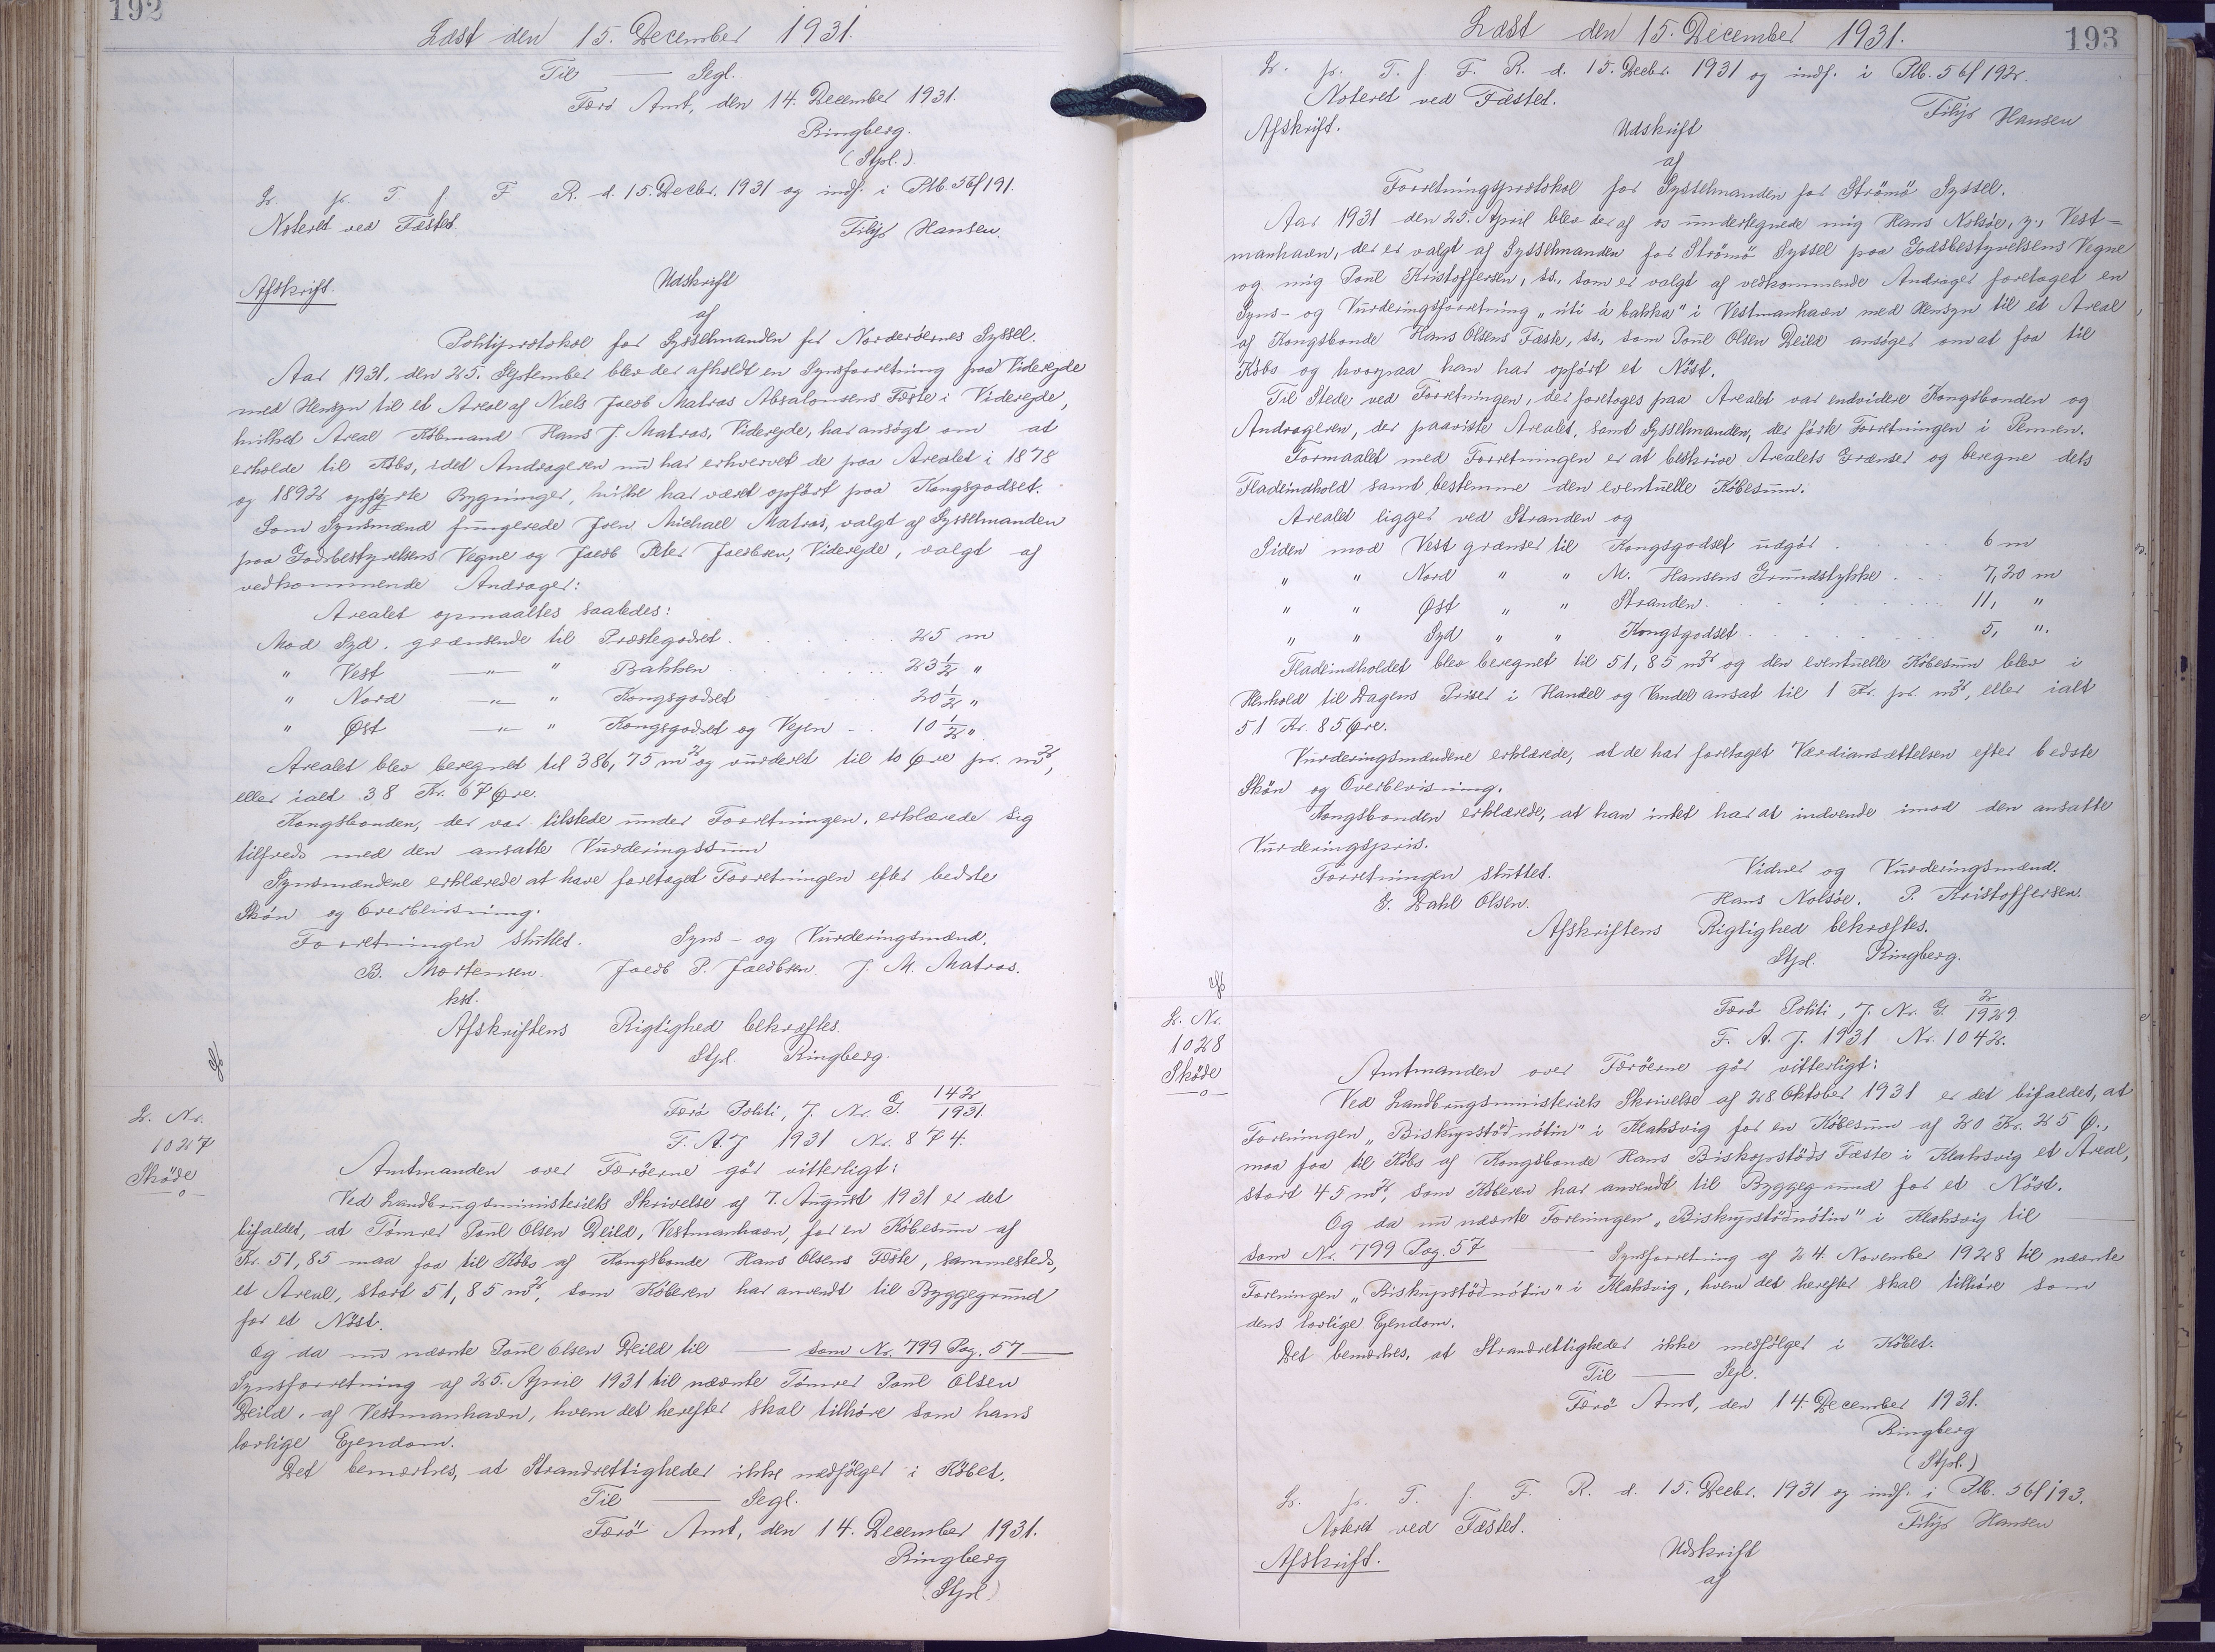 192
Læst den 15. December 1931.
Til — Segl.
Færö Amt, den 14. December 1931.
Ringberg.
(Stpl.).
L. p. T. f. F R. d. 15. Decbr. 1931 og indf. i Ptb. 56 f 191.
Noteret ved Fæstet.
Filip Hansen.
Afskrift.
Udskrift
af
Politiprotokol for Sysselmanden for Norderöernes Syssel.
Aar 1931, den 25. September blev der afholdt en Synsforretning paa Viderejde
med Hensyn til et Areal af Niels Jacob Matras Absalonsens Fæste i Viderejde,
hvilket Areal Købmand Hans J. Matras, Viderejde, har ansøgt om at
erholde til Købs, idet Andrageren nu har erhvervet de paa Arealet i 1878
og 1892 opførte Bygninger, hvilke har været opført paa Kongsgodset.
Som Synsmænd fungerede Joen Michael Matras, valgt af Sysselmanden
paa Godsbestyrelsens Vegne og Jacob Peter Jacobsen, Viderejde, valgt af
vedkommende Andrager:
Arealet opmaaltes saaledes:
Mod Syd, grænsende til Præstegodset . . . . . . 25 m
" Vest —"— " Bakken . . . . . . 23 1/2 "
" Nord —"— " Kongsgodset . . . . 20 1/2 "
" Øst —"— " Kongsgodset og Vejen . . 10 1/2 "
Arealet blev beregnet til 386,75 m² og vurderet til 10 Øre pr. m²,
eller ialt 38 Kr. 67 Øre.
Kongsbonden, der var tilstede under Forretningen, erklærede sig
tilfreds med den ansatte Vurderingssum
Synsmændene erklærede at have foretaget Forretningen efter bedste
Skön og Overbevisning.
Forretningen sluttet. Syns- og Vurderingsmænd.
B. Mortensen. Jacob P. Jacobsen. J. M. Matras.
kst.
Afskriftens Rigtighed bekræftes.
Stpl. Ringberg.
L. Nr.
1027
Sköde
—o—
Færö Politi, J. Nr. G. 142/1931.
F. A. J 1931 Nr. 874.
Amtmanden over Færöerne gör vitterligt:
Ved Landbrugsministeriets Skrivelse af 7. August 1931 er det
bifaldet, at Tømrer Poul Olsen Deild, Vestmanhavn, for en Købesum af
Kr. 51,85 maa faa til Købs af Kongsbonde Hans Olsens Fæste, sammesteds,
et Areal, stort 51,85 m², som Køberen har anvendt til Byggegrund
for et Nöst.
Og da nu nævnte Poul Olsen Deild til — som Nr. 799 Pag. 57 —
Synsforretning af 25. April 1931 til nævnte Tømrer Poul Olsen
Deild, af Vestmanhavn, hvem det herefter skal tilhöre som hans
lovlige Ejendom.
Det bemærkes, at Strandrettigheder ikke medfölger i Købet.
Til — Segl.
Færö Amt, den 14. December 1931.
Ringberg
(Stpl)
193
Læst den 15. December 1931.
L. p. T. f. F. R. d. 15. Decbr. 1931 og indf. i Ptb. 56 f 192.
Noteret ved Fæstet.
Filip Hansen
Afskrift.
Udskrift
af
Forretningsprotokol for Sysselmanden for Strömö Syssel.
Aar 1931 den 25. April blev der af os undertegnede mig Hans Nolsöe, y., Vest-
manhavn, der er valgt af Sysselmanden for Strömö Syssel paa Godsbestyrelsens Vegne
og mig Poul Kristoffersen, ss., som er valgt af vedkommende Andrager foretaget en
Syns- og Vurderingsforretning "úti á bakka" i Vestmanhavn med Hensyn til et Areal
af Kongsbonde Hans Olsens Fæste, ss., som Poul Olsen Deild ansöger om at faa til
Købs og hvorpaa han har opfört et Nöst.
Til Stede ved Forretningen, der foretoges paa Arealet var endvidere Kongsbonden og
Andrageren, der paaviste Arealet, samt Sysselmanden, der förte Forretningen i Pennen.
Formaalet med Forretningen er at beskrive Arealets Grænser og beregne dets
Fladeindhold samt bestemme den eventuelle Købesum.
Arealet ligger ved Stranden og
Siden mod Vest grænser til Kongsgodset udgör . . . . 6 m
" " Nord " " M. Hansens Grundstykke . . . 7,20 m
" " Øst " " Stranden . . . . . . . 11, "
" " Syd " " Kongsgodset . . . . . . 5, ".
Fladeindholdet blev beregnet til 51,85 m² og den eventuelle Købesum blev i
Henhold til Dagens Priser i Handel og Vandel ansat til 1 Kr. pr. m², eller ialt
51 Kr. 85 Øre.
Vurderingsmændene erklærede, at de har foretaget Værdiansættelsen efter bedste
Skön og Overbevisning.
Kongsbonden erklærede, at han intet har at indvende imod den ansatte
Vurderingspris.
Forretningen sluttet. Vidner og Vurderingsmænd.
G. Dahl Olsen. Hans Nolsöe. P. Kristoffersen.
Afskriftens Rigtighed bekræftes.
Stpl. Ringberg.
L. Nr.
1028
Sköde
—o—
Færö Politi, J. Nr. G. 2/1929.
F. A. J. 1931 Nr. 1042.
Amtmanden over Færöerne gör vitterligt:
Ved Landbrugsministeriets Skrivelse af 28. Oktober 1931 er det bifaldet, at
Foreningen "Biskupstöðnótin" i Klaksvig for en Købesum af 20 Kr. 25 Ø.,
maa faa til Købs af Kongsbonde Hans Biskopstöds Fæste i Klaksvig et Areal,
stort 45 m², som Køberen har anvendt til Byggegrund for et Nöst.
Og da nu nævnte Foreningen "Biskupstöðnótin" i Klaksvig til
som Nr. 799 Pag. 57 — Synsforretning af 24. November 1928 til nævnte
Foreningen "Biskupstöðnótin" i Klaksvig, hvem det herefter skal tilhöre som
dens lovlige Ejendom.
Det bemærkes, at Strandrettigheder ikke medfölger i Købet.
Til — Segl.
Færö Amt, den 14. December 1931.
Ringberg
(Stpl.)
L. p. T. f. F. R. d. 15. Decbr. 1931 og indf. i Ptb. 56 f 193.
Noteret ved Fæstet.
Filip Hansen
Afskrift.
Udskrift
af